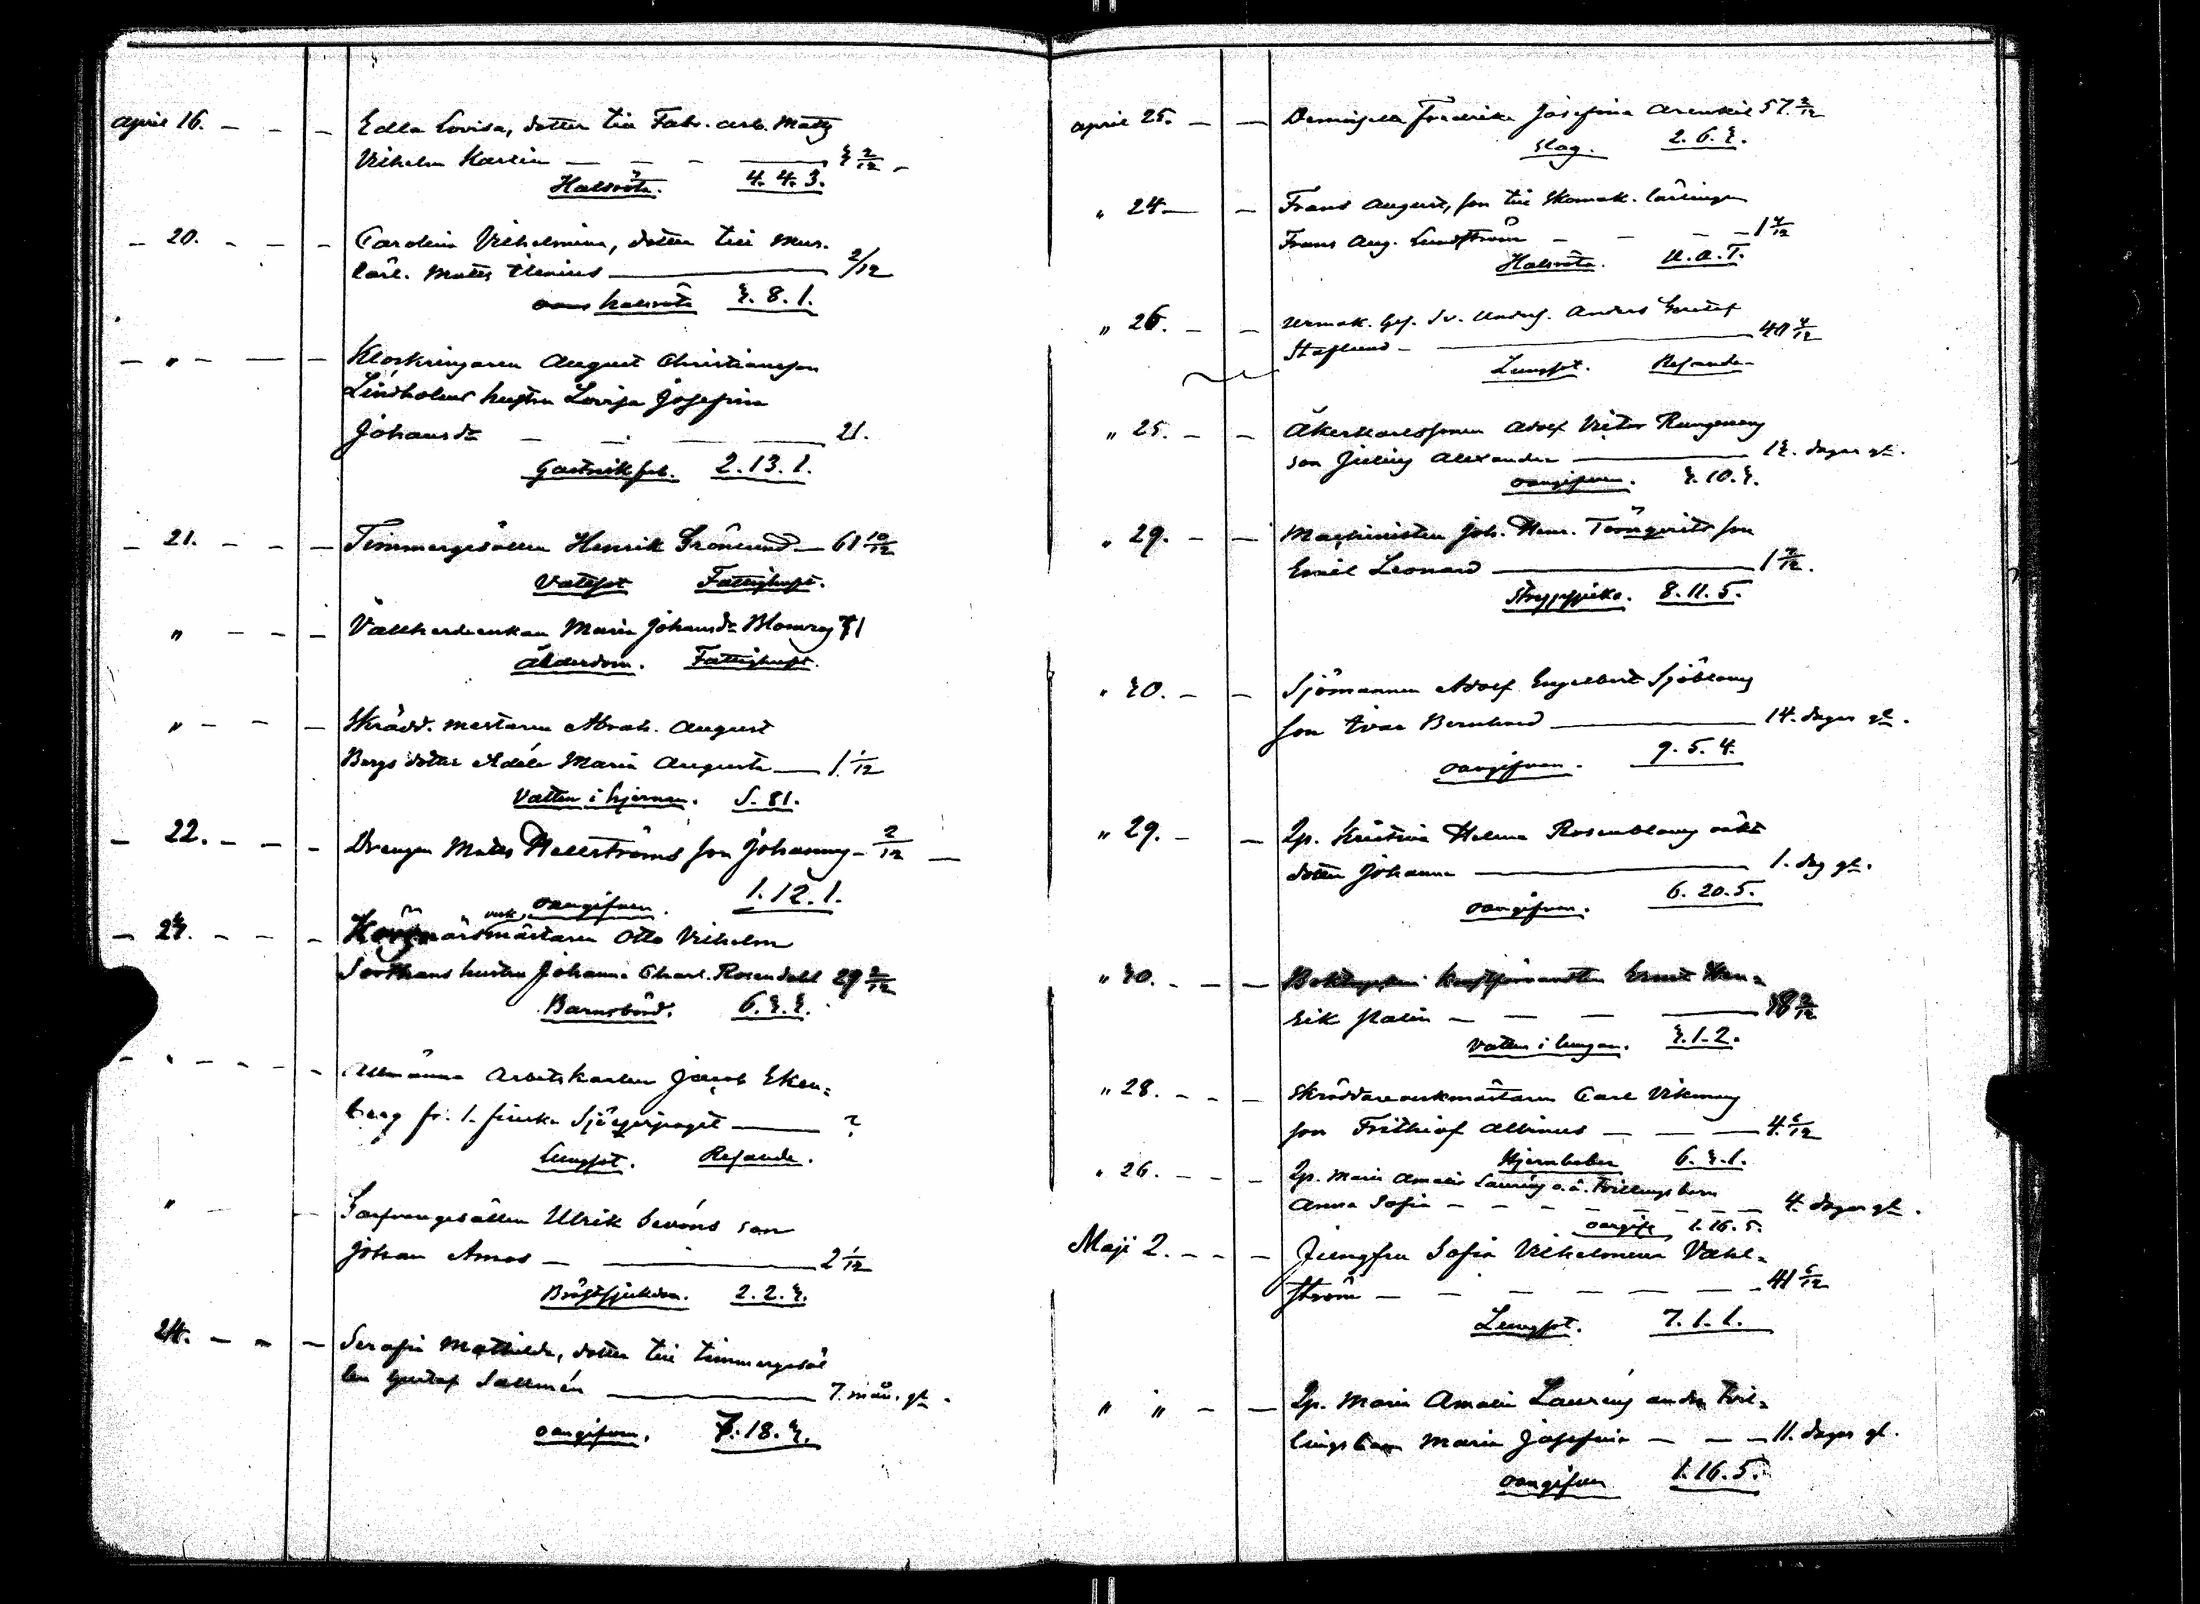 april 16. - - - Edla Lovisa, dotter till Fabr. arb. Matts
Vilhelm Karlin - - - 3 2/12
Halsröta. 4. 4. 3.
- 20. - - - Carolina Vilhelmina, dotter till Mur.
lärl. Matts Elenius 2/12
halsröta 3. 8. 1.
- " - - - Klockringaren August Christiansson
Lindholms hustru Lovisa Josefina
Johansdr - - - 21.
Gastrisk feb. 2. 13. 1.
- 21. - - - Timmergesällen Henrik Grönlund - 61 10/12
Vattsot Fattighuset.
" - - - Vallherdeenkan Maria Johansdr Blomroos 71
Ålderdom. Fattighuset.
" - - - Skrädd. mästaren Abrah. August
Bergs dotter Adéle Maria Augusta - 1 1/12
Vatten i hjernan. S. 81.
- 22. - - - Drengen Matts Hellströms son Johannes - 2/12
oangifven. 1. 12. 1.
- 23. - - - verk mästaren Otto Vilhelm
hustru Johanna Charl. Rosendahl 29 3/12
Barnsbörd. 6. 3. 3.
" - - - Allmänna Arbetskarlen Jacob Eken=
berg fr. 1. finska Sjöequipaget - ?
Lungsot. Resande.
" - Garfvaregesällen Ulrik son
Johan Amos - - 2 1/12
Bröstsjukdom. 2. 2. 3.
24. - - - Serafia Mathilda, dotter till timmergesäl
len Gustaf Sallmén 7. mån. gl.
oangifven. 7. 18. 3.
april 25. - - Demoisella Fredrika Josefina Arenkil 57 2/12
Slag. 2. 6. 3.
" 24. - - Frans August, son till Skomak. lärlingen
Frans Aug. Lundström - - - 1 4/12
Halsröta. U. a. T.
" 26. - - Urmak. Ges. Sv. Unders. Anders Gustaf
Staflund - 40 4/12
Lungsot. Resande
" 25. - - Åkerkarlssonen Adolf Victor Rungrens
son Julius Alexander 13. dagar gl.
oangifven. 3. 10. 3.
" 29. - - Maschinisten Joh. Henr. Törnqvists son
Emil Leonard 1 7/12.
Strypsjuka. 8. 11. 5.
" 30. - - Sjömannen Adolf Engelbert Sjöbloms
son Ivar Bernhard 14. dagar gl.
oangifven. 9. 5. 4.
" 29. - - Qp. Kristina Helena Rosenbloms oäkt
dotter Johanna 1. dag gl.
oangifven. 6. 20. 5.
" 30. - - - Ernst Hen=
rik Malin - - - 38 9/12
Vatten i lungan. 3. 1. 2.
" 28. - - - Skräddareverkmästaren Carl Vikmans
son Frithiof Albinus - - - 4 5/12
Hjernfeber 6. 3. 1.
" 26. - - - Qp. Maria Amalia Lauréns o.ä. Tvillingsbarn
Anna Sofia - - - - - 4. dagar gl.
oangif. 1. 16. 5.
Maji 2. - - - Jungfru Sofia Vilhelmina Vahl=
ström - - - - - 41 5/12
Lungsot. 7. 1. 1.
" " - - Qp. Maria Amalia Lauréns andra Tvil=
lingsbarn Maria Josefina - - - 11. dagar gl.
oangifven 1. 16. 5.